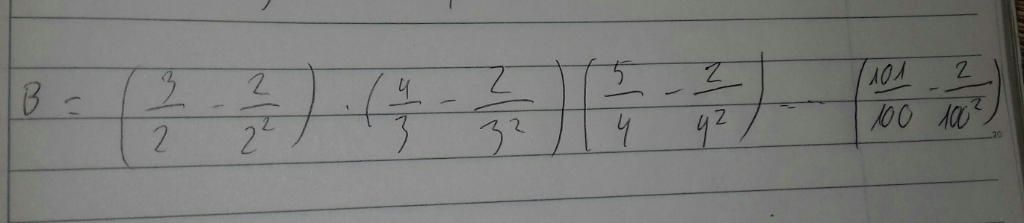 B = (3/2 - 2/2²) · (4/3 - 2/3²) (5/4 - 2/4²) --- (101/100 - 2/100²)